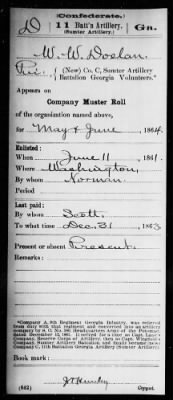 (Confederate.)
D 11 Batt'n Artillery, Ga.
(Sumter Artillery)
W. W. Doolan
Pvt., (New) Co. C, Sumter Artillery
Battalion Georgia Volunteers.*
Appears on
Company Muster Roll
of the organization named above,
for May & June, 1864.
Enlisted:
When June 11, 1861.
Where Washington,
By whom Norman.
Period
Last paid:
By whom Scott.
To what time Dec. 31, 1863
Present or absent Present.
Remarks:
*Company A, 9th Regiment Georgia Infantry, was released
from duty with that regiment and converted into an artillery
Book mark:
(642)
Copyist.